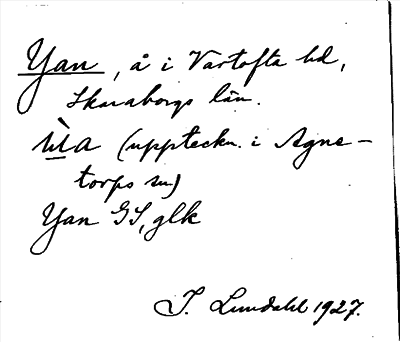 Yan, å i Vartofta hd,
Skaraborgs län.
(uppteckn. i Agne-
torps sn)
Yan GS, glk
J. Lundahl 1927.